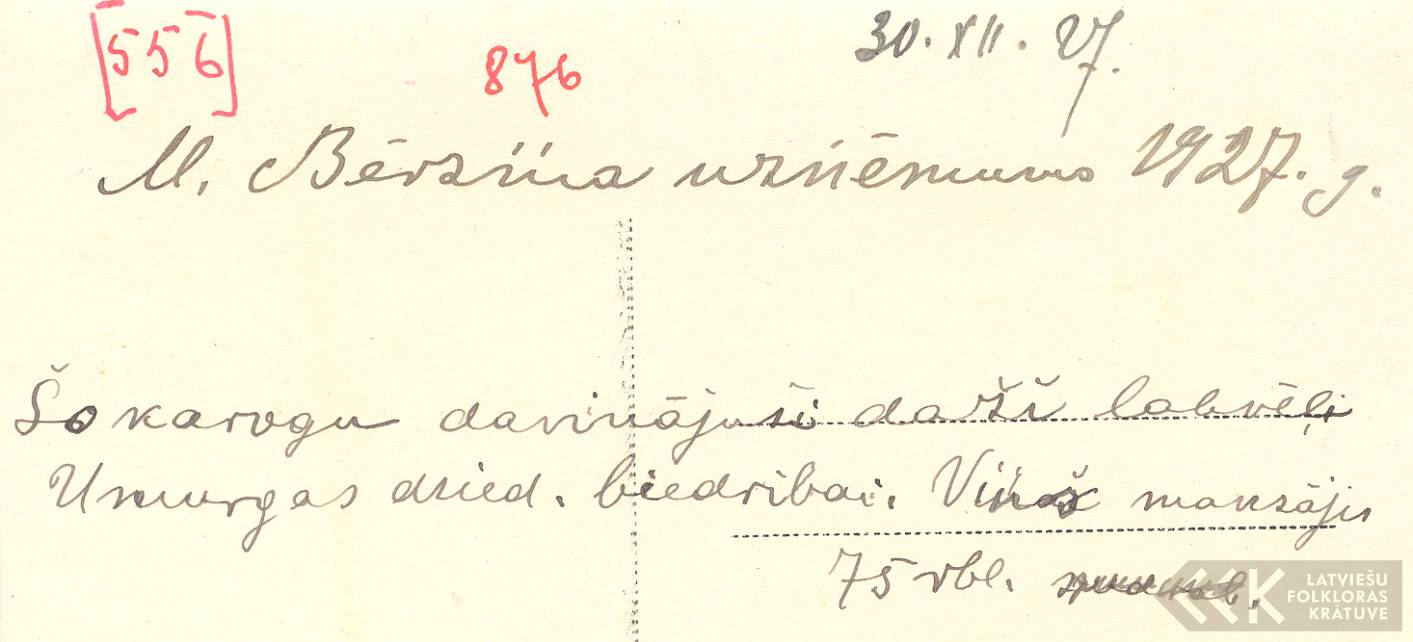 [556] 876 30.XII.27.
M. Bērziņa uzņēmums 1927. g.
Šo karogu davinājuši daži labvēļi
Umurgas dzied. biedrībai. Viņš maksājis
75 rbl.
LATVIEŠU
FOLKLORAS
KRĀTUVE